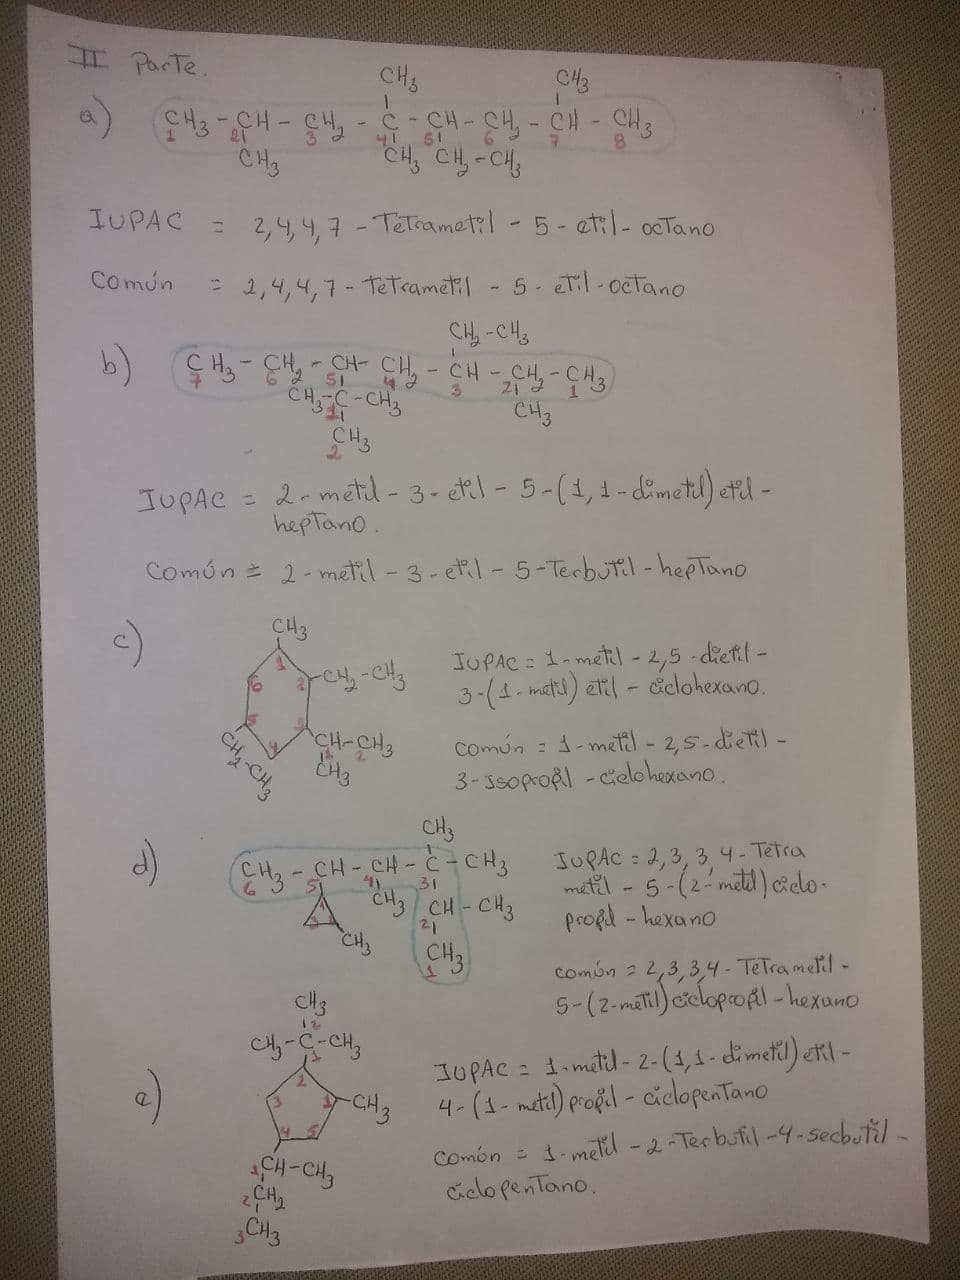 II Parte.
CH3 CH3
a) CH3 - CH - CH2 - C - CH - CH2 - CH - CH3
1 2 3 4 5 6 7 8
CH3 CH3 CH2-CH3
IUPAC = 2,4,4,7 - Tetrametil - 5 - etil - octano
Común = 2,4,4,7 - tetrametil - 5 - etil - octano
CH2-CH3
b) CH3 - CH2 - CH - CH2 - CH - CH2 - CH3
7 6 5 4 3 2 1
CH3-C-CH3 CH3
1
CH3
2
IUPAC = 2-metil - 3-etil - 5-(1,1-dimetil)etil -
heptano.
Común = 2-metil - 3-etil - 5-Terbutil - hepTano
c) CH3
1
6 2 -CH2-CH3
5 3
4 CH-CH3
1 2
CH3
CH2-CH3
IUPAC = 1-metil - 2,5-dietil -
3-(1-metil)etil - ciclohexano.
común = 1-metil - 2,5-dietil -
3-Isopropil - ciclohexano.
CH3
d) CH3 - CH - CH - C - CH3
6 5 4 3
CH3 CH - CH3
2
1 2 3
CH3 CH3
1
IUPAC = 2,3,3,4-Tetra
metil - 5-(2-metil)ciclo-
propil - hexano
común = 2,3,3,4-TeTrametil -
5-(2-metil)ciclopropil - hexano
CH3
2
CH3-C-CH3
1
e) 2
3 1 -CH3
4 5
1 CH-CH3
2 CH2
3 CH3
IUPAC = 1-metil - 2-(1,1-dimetil)etil -
4-(1-metil)propil - ciclopentano
común = 1-metil - 2-Terbutil - 4-secbutil -
ciclopenTano.